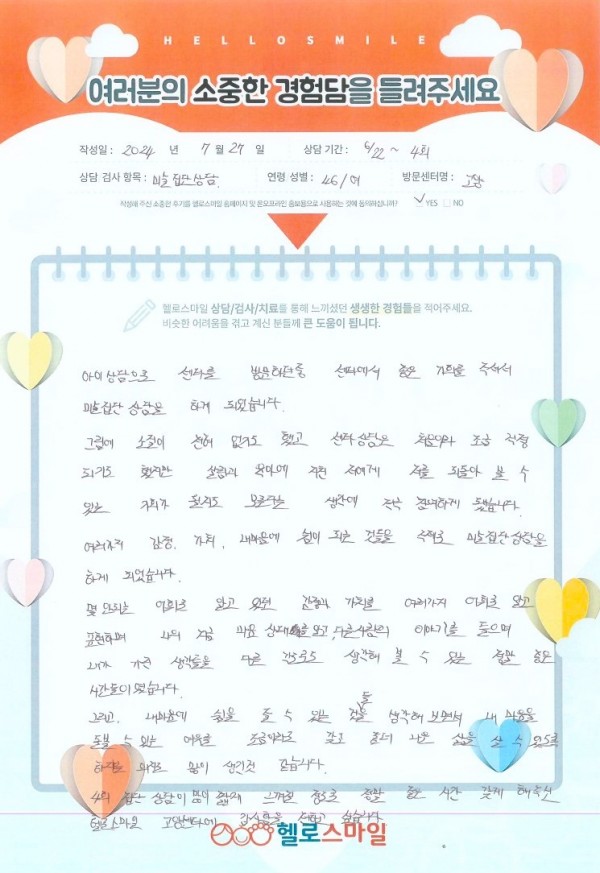 HELLOSMILE
여러분의 소중한 경험담을 들려주세요
작성일 : 2024 년 7 월 27 일 상담 기간 : 6/22 ~ 4회
상담 검사 항목 : 미술집단상담. 연령 성별 : 46/여 방문센터명 : 고양
작성해 주신 소중한 후기를 헬로스마일 홈페이지 및 온오프라인 홍보용으로 사용하는 것에 동의하십니까? YES NO
헬로스마일 상담/검사/치료를 통해 느끼셨던 생생한 경험들을 적어주세요.
비슷한 어려움을 겪고 계신 분들께 큰 도움이 됩니다.
아이상담으로 센터를 방문하던중 센터에서 좋은 기회를 주셔서
미술집단 상담을 하게 되었습니다.
그림에 소질이 전혀 없기도 했고 센터상담은 처음이라 조금 걱정
되기도 했지만 살림과 육아에 지친 저에게 저를 되돌아 볼 수
있는 기회가 될지도 모른다는 생각에 참여하게 됐습니다.
여러가지 감정, 가치, 내마음에 힘이 되는 것들을 주제로 미술집단상담을
하게 되었습니다.
몇 안되는 단어로 알고 있던 감정과 가치를 여러가지 단어로 알고
표현하며 나의 지금 마음 상태를 알고, 다른사람의 이야기를 들으며
내가 가진 생각들을 다른 각도로도 생각해 볼 수 있는 정말 좋은
시간들이었습니다.
그리고, 내마음에 쉼을 줄 수 있는 것들을 생각해 보면서 내 마음을
돌볼 수 있는 여유를 조금이라도 갖고 좀더 나은 삶을 살 수 있도록
하겠다는 의지도 많이 생긴것 같습니다.
4회 집단 상담이 많이 짧게 느껴질 정도로 정말 좋은 시간 갖게 해주신
헬로스마일 고양센터에 감사함을 전하고 싶습니다.
헬로스마일